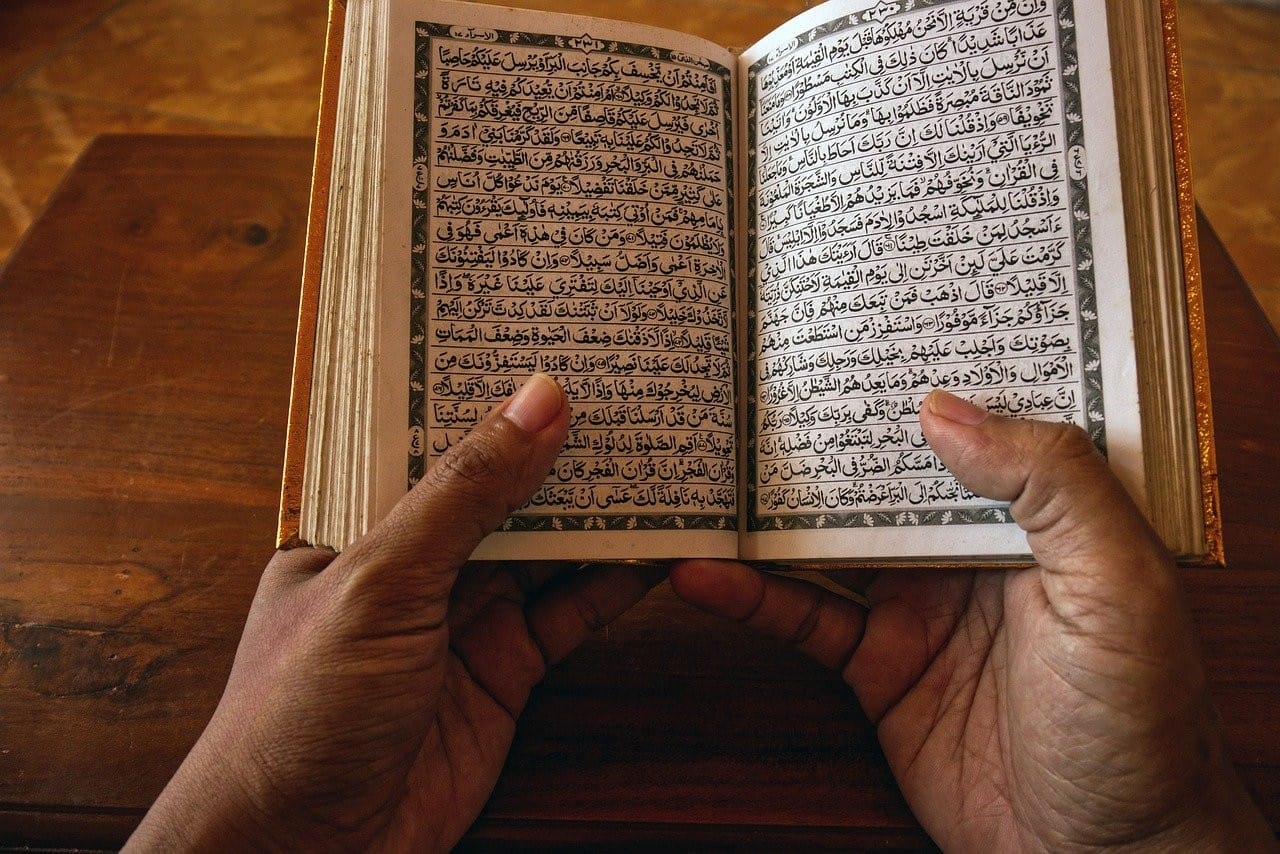 ٢٣٠
وَاِنْ مِّنْ قَرْيَةٍ اِلَّا نَحْنُ مُهْلِكُوْهَا قَبْلَ يَوْمِ الْقِيٰمَةِ اَوْ مُعَذِّبُوْهَا
عَذَابًا شَدِيْدًا كَانَ ذٰلِكَ فِى الْكِتٰبِ مَسْطُوْرًا ۝٥٨ وَمَا مَنَعَنَآ
اَنْ نُّرْسِلَ بِالْاٰيٰتِ اِلَّآ اَنْ كَذَّبَ بِهَا الْاَوَّلُوْنَ وَاٰتَيْنَا
ثَمُوْدَ النَّاقَةَ مُبْصِرَةً فَظَلَمُوْا بِهَا وَمَا نُرْسِلُ بِالْاٰيٰتِ اِلَّا
تَخْوِيْفًا ۝٥٩ وَاِذْ قُلْنَا لَكَ اِنَّ رَبَّكَ اَحَاطَ بِالنَّاسِ وَمَا جَعَلْنَا
الرُّءْيَا الَّتِيْٓ اَرَيْنٰكَ اِلَّا فِتْنَةً لِّلنَّاسِ وَالشَّجَرَةَ الْمَلْعُوْنَةَ
فِى الْقُرْاٰنِ وَنُخَوِّفُهُمْ فَمَا يَزِيْدُهُمْ اِلَّا طُغْيَانًا كَبِيْرًا ۝٦٠
وَاِذْ قُلْنَا لِلْمَلٰٓئِكَةِ اسْجُدُوْا لِاٰدَمَ فَسَجَدُوْٓا اِلَّآ اِبْلِيْسَ قَالَ
ءَاَسْجُدُ لِمَنْ خَلَقْتَ طِيْنًا ۝٦١ قَالَ اَرَءَيْتَكَ هٰذَا الَّذِيْ
كَرَّمْتَ عَلَيَّ لَئِنْ اَخَّرْتَنِ اِلٰى يَوْمِ الْقِيٰمَةِ لَاَحْتَنِكَنَّ ذُرِّيَّتَهٗٓ
اِلَّا قَلِيْلًا ۝٦٢ قَالَ اذْهَبْ فَمَنْ تَبِعَكَ مِنْهُمْ فَاِنَّ جَهَنَّمَ
جَزَآؤُكُمْ جَزَآءً مَّوْفُوْرًا ۝٦٣ وَاسْتَفْزِزْ مَنِ اسْتَطَعْتَ مِنْهُمْ
بِصَوْتِكَ وَاَجْلِبْ عَلَيْهِمْ بِخَيْلِكَ وَرَجِلِكَ وَشَارِكْهُمْ فِى
الْاَمْوَالِ وَالْاَوْلَادِ وَعِدْهُمْ وَمَا يَعِدُهُمُ الشَّيْطٰنُ اِلَّا غُرُوْرًا ۝٦٤
اِنَّ عِبَادِيْ لَيْسَ سُلْطٰنٌ وَكَفٰى بِرَبِّكَ وَكِيْلًا ۝٦٥ رَبُّكُمُ
فِى الْبَحْرِ لِتَبْتَغُوْا مِنْ فَضْلِهٖ اِنَّهٗ
وَاِذَا مَسَّكُمُ الضُّرُّ فِى الْبَحْرِ ضَلَّ مَنْ
نَجّٰىكُمْ اِلَى الْبَرِّ اَعْرَضْتُمْ وَكَانَ الْاِنْسَانُ كَفُوْرًا ۝٦٧
الاسرآء ١٧
٢٣١
اَفَاَمِنْتُمْ اَنْ يَّخْسِفَ بِكُمْ جَانِبَ الْبَرِّ اَوْ يُرْسِلَ عَلَيْكُمْ حَاصِبًا
ثُمَّ لَا تَجِدُوْا لَكُمْ وَكِيْلًا ۝٦٨ اَمْ اَمِنْتُمْ اَنْ يُّعِيْدَكُمْ فِيْهِ تَارَةً
اُخْرٰى فَيُرْسِلَ عَلَيْكُمْ قَاصِفًا مِّنَ الرِّيْحِ فَيُغْرِقَكُمْ بِمَا كَفَرْتُمْ
ثُمَّ لَا تَجِدُوْا لَكُمْ عَلَيْنَا بِهٖ تَبِيْعًا ۝٦٩ وَلَقَدْ كَرَّمْنَا بَنِيْٓ اٰدَمَ وَ
حَمَلْنٰهُمْ فِى الْبَرِّ وَالْبَحْرِ وَرَزَقْنٰهُمْ مِّنَ الطَّيِّبٰتِ وَفَضَّلْنٰهُمْ
عَلٰى كَثِيْرٍ مِّمَّنْ خَلَقْنَا تَفْضِيْلًا ۝٧٠ يَوْمَ نَدْعُوْا كُلَّ اُنَاسٍ
بِاِمَامِهِمْ فَمَنْ اُوْتِيَ كِتٰبَهٗ بِيَمِيْنِهٖ فَاُولٰٓئِكَ يَقْرَءُوْنَ كِتٰبَهُمْ
وَلَا يُظْلَمُوْنَ فَتِيْلًا ۝٧١ وَمَنْ كَانَ فِيْ هٰذِهٖٓ اَعْمٰى فَهُوَ فِى
الْاٰخِرَةِ اَعْمٰى وَاَضَلُّ سَبِيْلًا ۝٧٢ وَاِنْ كَادُوْا لَيَفْتِنُوْنَكَ
عَنِ الَّذِيْٓ اَوْحَيْنَآ اِلَيْكَ لِتَفْتَرِيَ عَلَيْنَا غَيْرَهٗ وَاِذًا
لَّاتَّخَذُوْكَ خَلِيْلًا ۝٧٣ وَلَوْلَآ اَنْ ثَبَّتْنٰكَ لَقَدْ كِدْتَّ تَرْكَنُ اِلَيْهِمْ
شَيْـًٔا قَلِيْلًا ۝٧٤ اِذًا لَّاَذَقْنٰكَ ضِعْفَ الْحَيٰوةِ وَضِعْفَ الْمَمَاتِ
ثُمَّ لَا تَجِدُ لَكَ عَلَيْنَا نَصِيْرًا ۝٧٥ وَاِنْ كَادُوْا لَيَسْتَفِزُّوْنَكَ مِنَ
الْاَرْضِ لِيُخْرِجُوْكَ مِنْهَا وَاِذًا لَّا خِلٰفَكَ اِلَّا قَلِيْلًا ۝٧٦
سُنَّةَ مَنْ قَدْ اَرْسَلْنَا قَبْلَكَ مِنْ لِسُنَّتِنَا
تَحْوِيْلًا ۝٧٧ اَقِمِ الصَّلٰوةَ لِدُلُوْكِ الشَّمْسِ
وَقُرْاٰنَ الْفَجْرِ اِنَّ قُرْاٰنَ الْفَجْرِ كَانَ
فَتَهَجَّدْ بِهٖ نَافِلَةً لَّكَ عَسٰٓى اَنْ يَّبْعَثَكَ